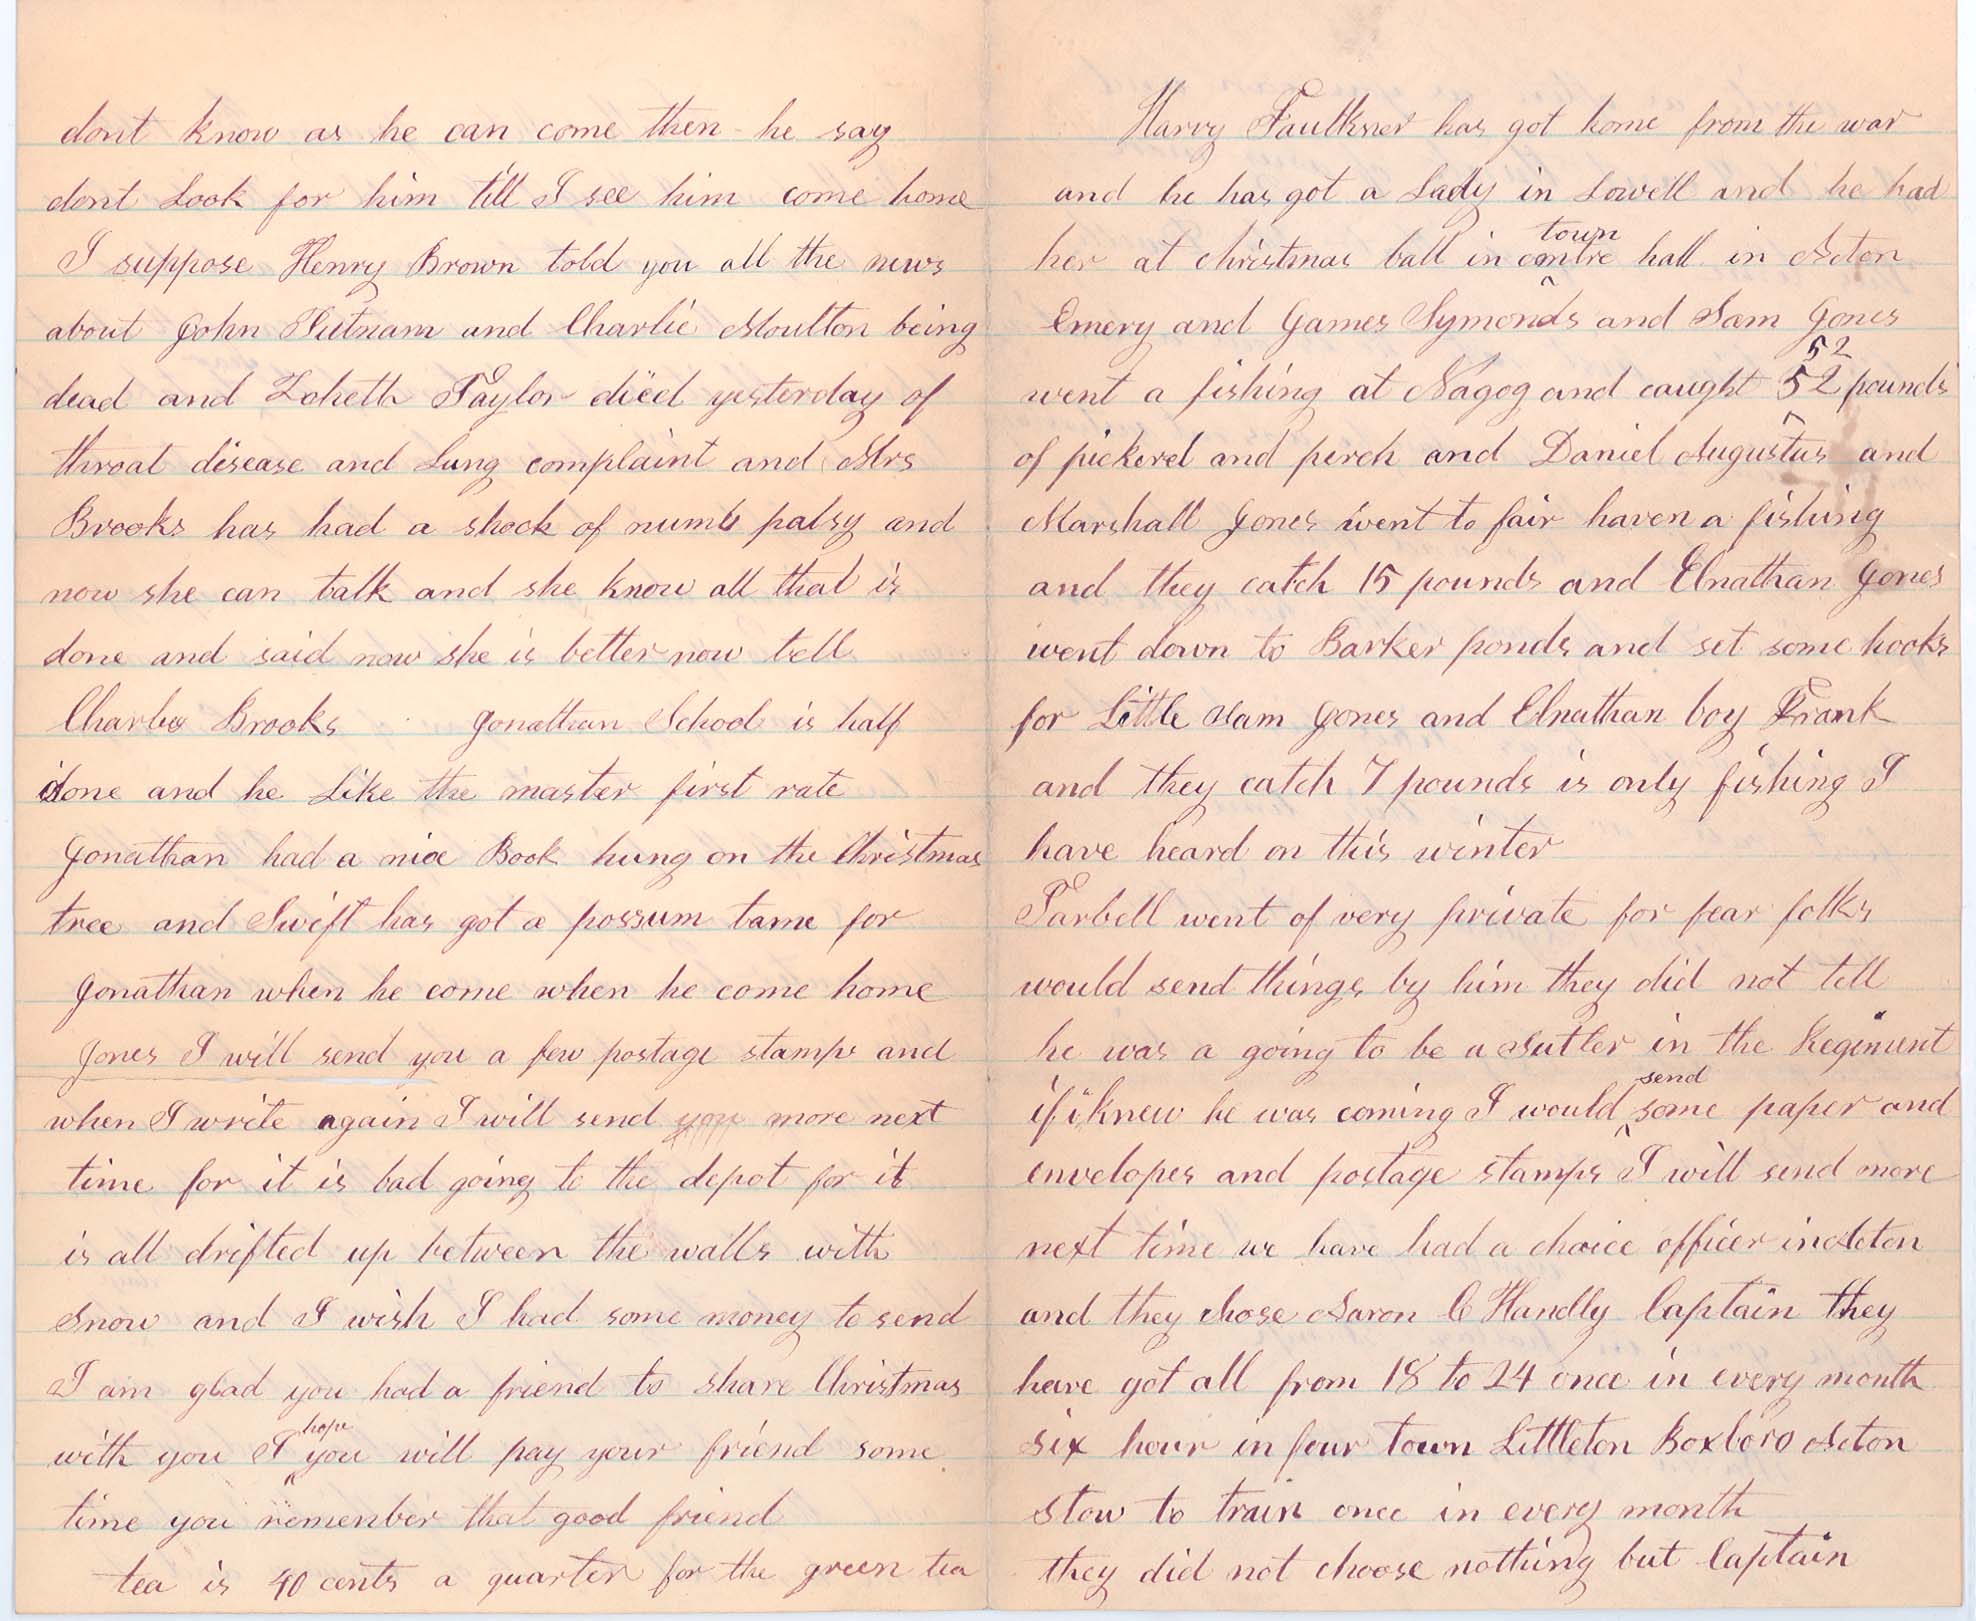 dont know as he can come then he say
dont Look for him till I see him come home
I suppose Henry Brown told you all the news
about John Putnam and Charlie Moulton being
dead and Loketh Taylor died yesterday of
throat disease and Lung complaint and Mrs
Brooks has had a shock of numb palsy and
now she can talk and she know all that is
done and said now she is better now tell
Charley Brooks Jonathan School is half
done and he Like the master first rate
Jonathan had a nice Book hung on the Christmas
tree and Swift has got a possum tame for
Jonathan when he come when he come home
Jones I will send you a few postage stamps and
when I write again I will send you more next
time for it is bad going to the depot for it
is all drifted up between the walls with
snow and I wish I had some money to send
I am glad you had a friend to share Christmas
hope
with you I you will pay your friend some
time you remember that good friend
tea is 40 cents a quarter for the green tea
Harry Faulkner has got home from the war
and he has got a Lady in Lowell and he had
town
her at christmas ball in centre hall in Acton
Emery and James Symonds and Sam Jones
52
went a fishing at Nagog and caught 52 pounds
of pickerel and perch and Daniel Augustus and
Marshall Jones went to fair haven a fishing
and they catch 15 pounds and Elnathan Jones
went down to Barker ponds and set some hooks
for Little Sam Jones and Elnathan boy Frank
and they catch 7 pounds is only fishing I
have heard on this winter
Tarbell went of very private for fear folks
would send things by him they did not tell
he was a going to be a Sutler in the Regiment
send
if i knew he was coming I would some paper and
envelopes and postage stamps I will send more
next time we have had a choice officer in Acton
and they chose Aaron C Handly Captain they
have got all from 18 to 24 once in every month
six hour in four town Littleton Boxboro Acton
Stow to train once in every month
they did not choose nothing but Captain